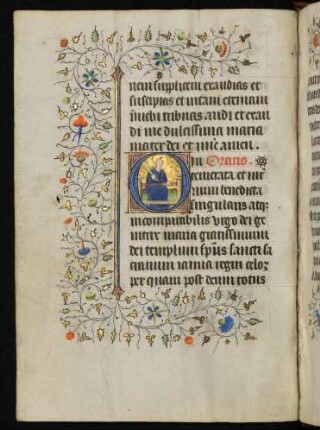 nem suplicem exaudias et
suscipias et vitam eternam
michi tribuas audi et exau
di me dulcissima maria
mater dei et mie amen.
In Oratio.
temerata et in
num benedicta
singularis atq
incomparabilis virgo dei ge
nitrix maria gratissimum
dei templum spus sancti sa
crarium ianua regni celor
per quam post deum totus